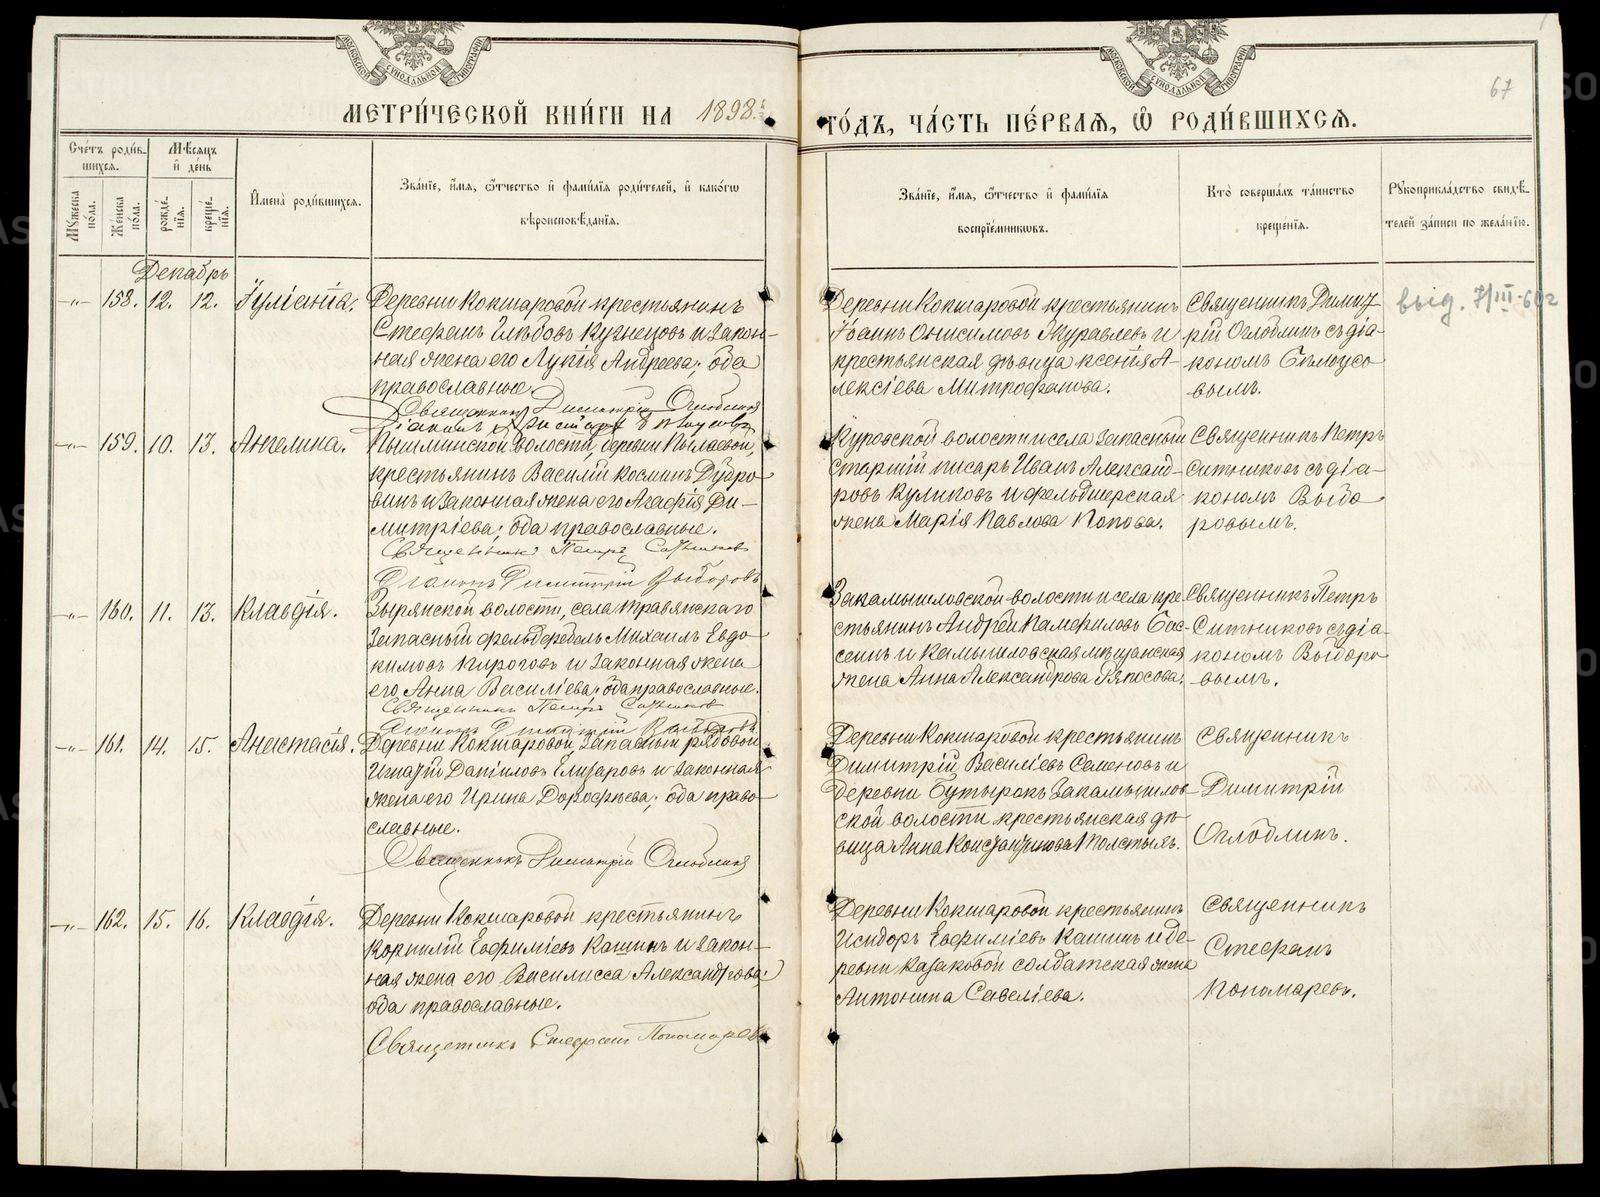 67
МОСКОВСКОЙ СѴНОДАЛЬНОЙ ТИПОГРАФІИ
МОСКОВСКОЙ СѴНОДАЛЬНОЙ ТИПОГРАФІИ
МЕТРИ́ЧЕСКОЙ КНИ́ГИ НА 1898 й
ГО́ДЪ, ЧА́СТЬ ПЕ́РВАЯ, Ѡ РОДИ́ВШИХСЯ.
Сче́тъ роди́вшихся.
Мꙋ́жеска по́ла.
Же́нска по́ла.
Мѣ́сяцъ и҆ де́нь
рожде́нія.
креще́нія.
И҆мена̀ роди́вшихся.
Зва́ніе, и҆́мя, ѻ҆́тчество и҆ фами́лія роди́телей, и҆ како́гѡ
вѣроисповѣ́данія.
Зва́ніе, и҆́мя, ѻ҆́тчество и҆ фами́лія
воспріе́мникѡвъ.
Кто̀ соверша́лъ та́инство
креще́нія.
Рꙋкоприкла́дство свидѣ́-
телей за́писи по жела́нію.
Декабрь
-„- 158. 12. 12. Іуліанія. Деревни Кокшаровой крестьянинъ
Стефанъ Глѣбовъ Кузнецовъ и закон-
ная жена его Лукія Андреева; оба
православные
Священникъ Димитрій Оглоблинъ
Діаконъ Бѣлоусовъ
Деревни Кокшаровой крестьянинъ
Іоаннъ Онисимовъ Журавлевъ и
крестьянская дѣвица Ксенія А-
лексіева Митрофанова.
Священникъ Димит-
рій Оглоблинъ съ діа-
кономъ Бѣлоусо
вымъ.
выд. 7/III-60г
-„- 159. 10. 13. Ангелина. Пышминской волости, деревни Пылаевой,
крестьянинъ Василій Косминъ Дубро
винъ и законная жена его Агафія Ди-
митріева; оба православные.
Священникъ Петръ Ситниковъ
Діаконъ Димитрій Выборовъ
Куровской волости и села запасный
старшій писарь Иванъ Александ-
ровъ Куликовъ и фельдшерская
жена Марія Павлова Попова.
Священникъ Петръ
Ситниковъ съ діа-
кономъ Выбо
ровымъ.
-„- 160. 11. 13. Клавдія. Зырянской волости, села Травянскаго
Запасный фельдфебель Михаилъ Евдо-
кимовъ Пироговъ и законная жена
его Анна Василіева; оба православные.
Священникъ Петръ Ситниковъ
Діаконъ Димитрій Выборовъ
Закамышловской волости и села кре-
стьянинъ Андрей Памфиловъ Бас-
синъ и Камышловская мѣщанская
жена Анна Александрова Ряпосова.
Священникъ Петръ
Ситниковъ съ діа-
кономъ Выборо
вымъ.
-„- 161. 14. 15. Анастасія. Деревни Кокшаровой запасный рядовой
Игнатій Даніиловъ Елизаровъ и законная
жена его Ирина Дорофѣева; оба право-
славные.
Священникъ Димитрій Оглоблинъ
Деревни Кокшаровой крестьянинъ
Димитрій Василіевъ Семеновъ и
деревни Бутырокъ Закамышлов-
ской волости крестьянская дѣ-
вица Анна Константинова Толстыхъ.
Священникъ
Димитрій
Оглоблинъ.
-„- 162. 15. 16. Клавдія. Деревни Кокшаровой крестьянинъ
Корнилій Евфиміевъ Кашинъ и закон-
ная жена его Василисса Александрова;
оба православные.
Священникъ Стефанъ Пономаревъ
Деревни Кокшаровой крестьянинъ
Исидоръ Евфиміевъ Кашинъ и де-
ревни Казаковой солдатская жена
Антонина Савеліева.
Священникъ
Стефанъ
Пономаревъ.
METRIKI.GASO-URAL.RU